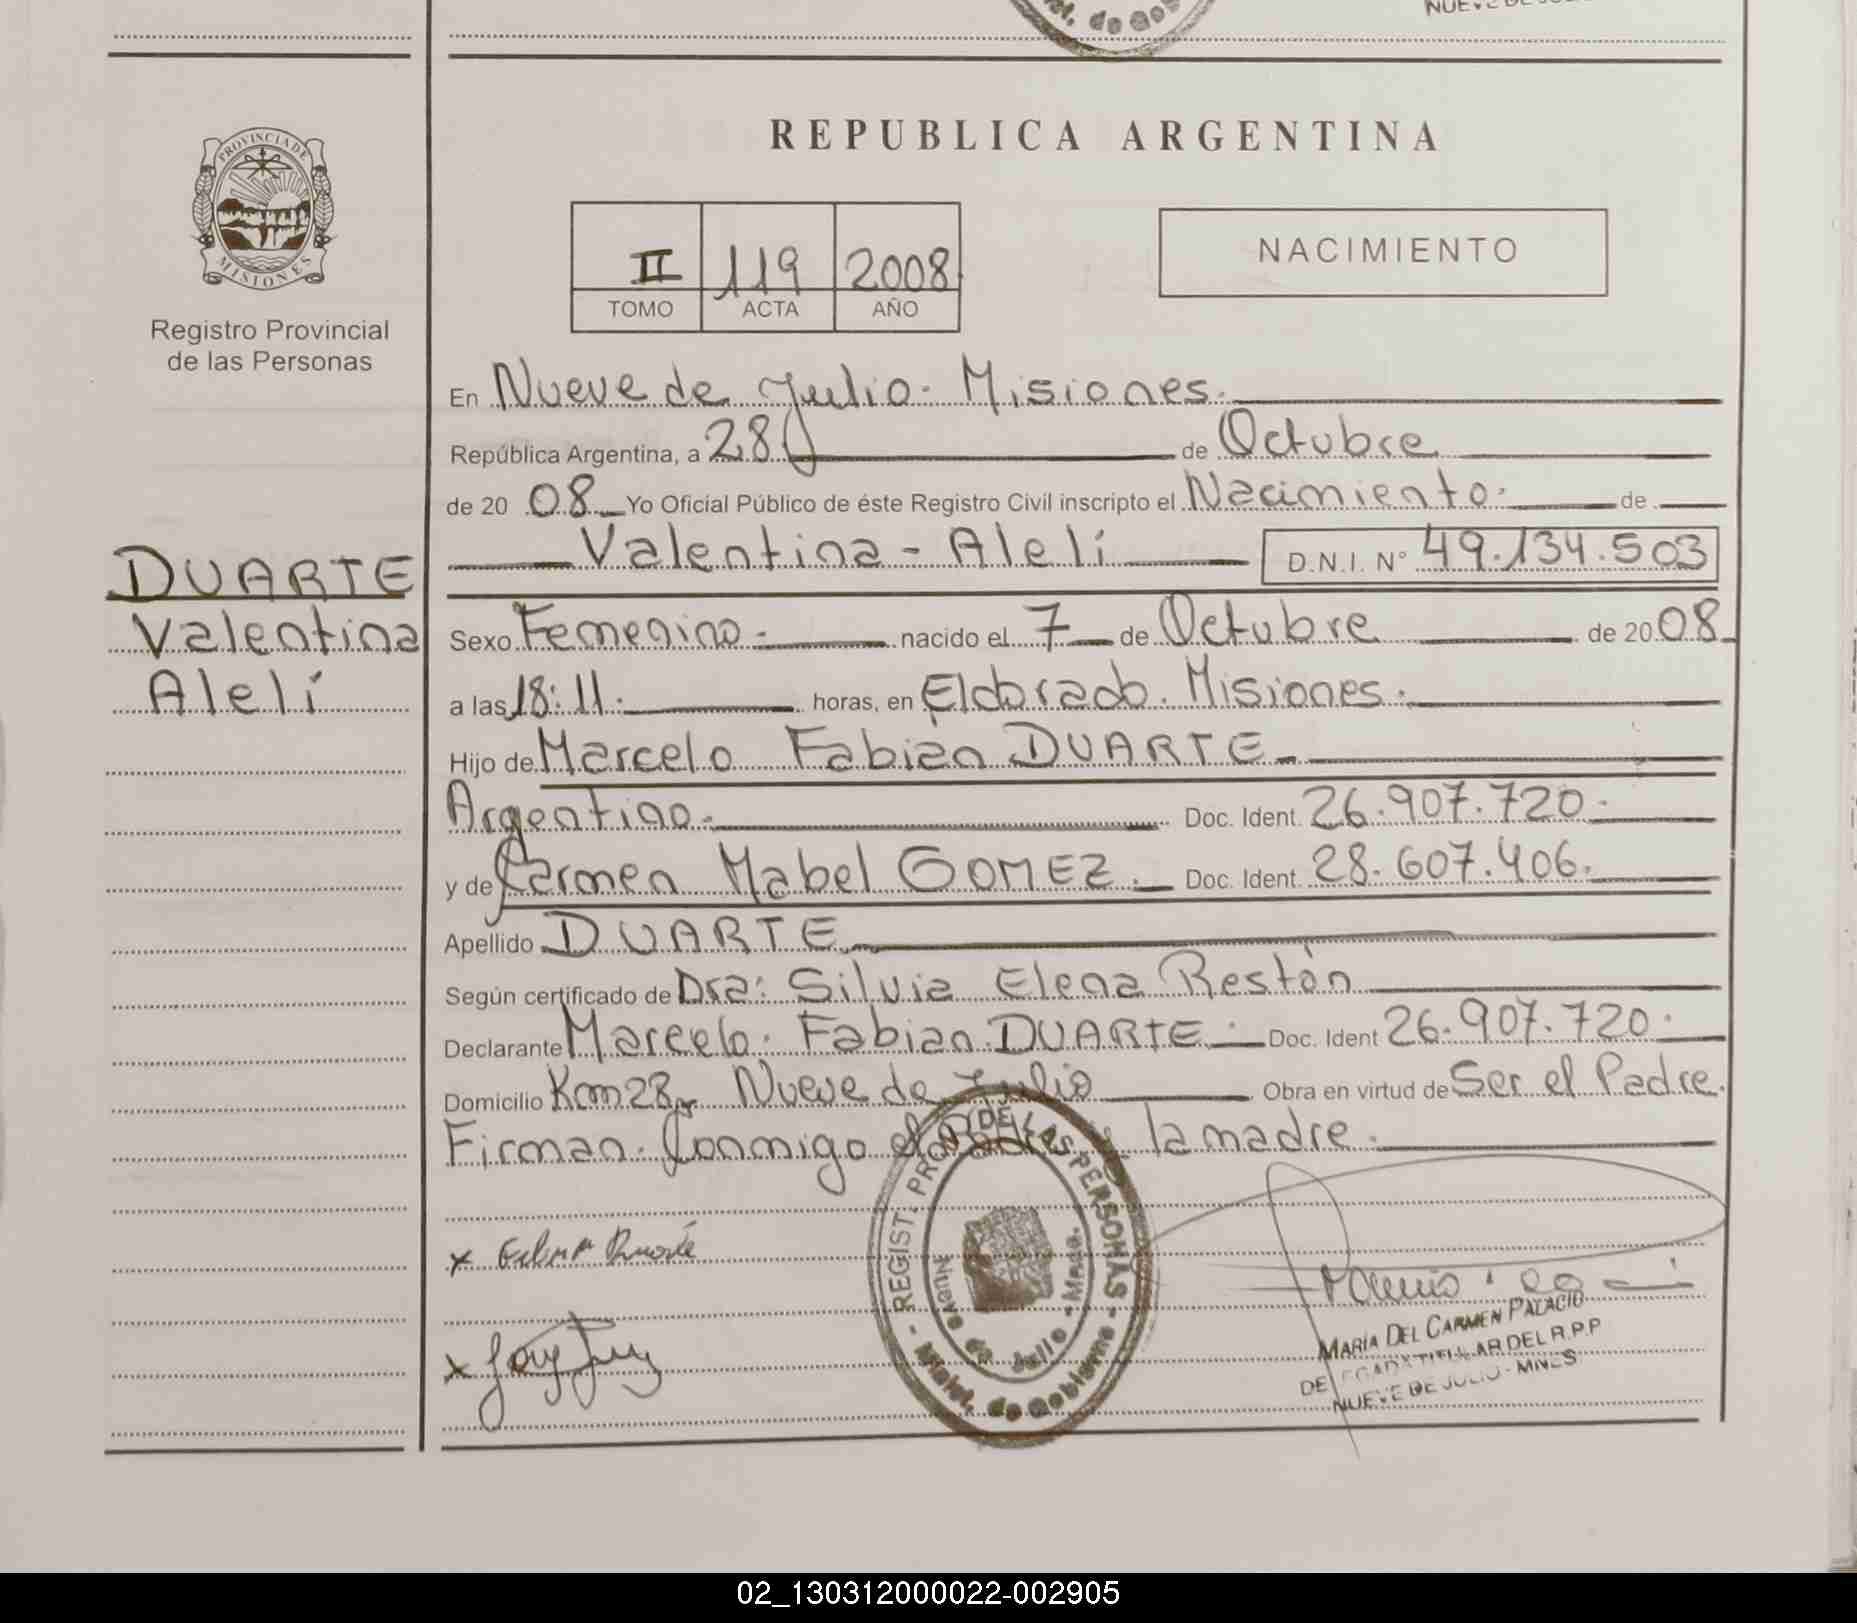 NUEVE DE JULIO
Minist. de Gob
REPUBLICA ARGENTINA
PROVINCIA DE
MISIONES
Registro Provincial
de las Personas
II 119 2008
TOMO ACTA AÑO
NACIMIENTO
En Nueve de Julio. Misiones.
República Argentina, a 28 de Octubre
de 20 08 Yo Oficial Público de éste Registro Civil inscripto el Nacimiento. de
Valentina - Alelí D.N.I. N° 49.134.503
DUARTE
Valentina
Alelí
Sexo Femenino. nacido el 7 de Octubre de 20 08
a las 18:11. horas, en Eldorado. Misiones.
Hijo de Marcelo Fabián DUARTE
Argentino. Doc. Ident. 26.907.720.
y de Carmen Mabel GOMEZ. Doc. Ident. 28.607.406.
Apellido DUARTE
Según certificado de Dra: Silvia Elena Restón
Declarante Marcelo. Fabian DUARTE. Doc. Ident 26.907.720.
Domicilio Km 28, Nueve de Julio Obra en virtud de Ser el Padre.
Firman. Conmigo el Padre y la madre.
REGIST. PROV. DE LAS PERSONAS
Nueve de Julio - Mnes.
- Minist. de Gobierno -
x Fabian Duarte
x
MARIA DEL CARMEN PALACIO
DELEGADA TITULAR DEL R.P.P
NUEVE DE JULIO - MNES
02_130312000022-002905